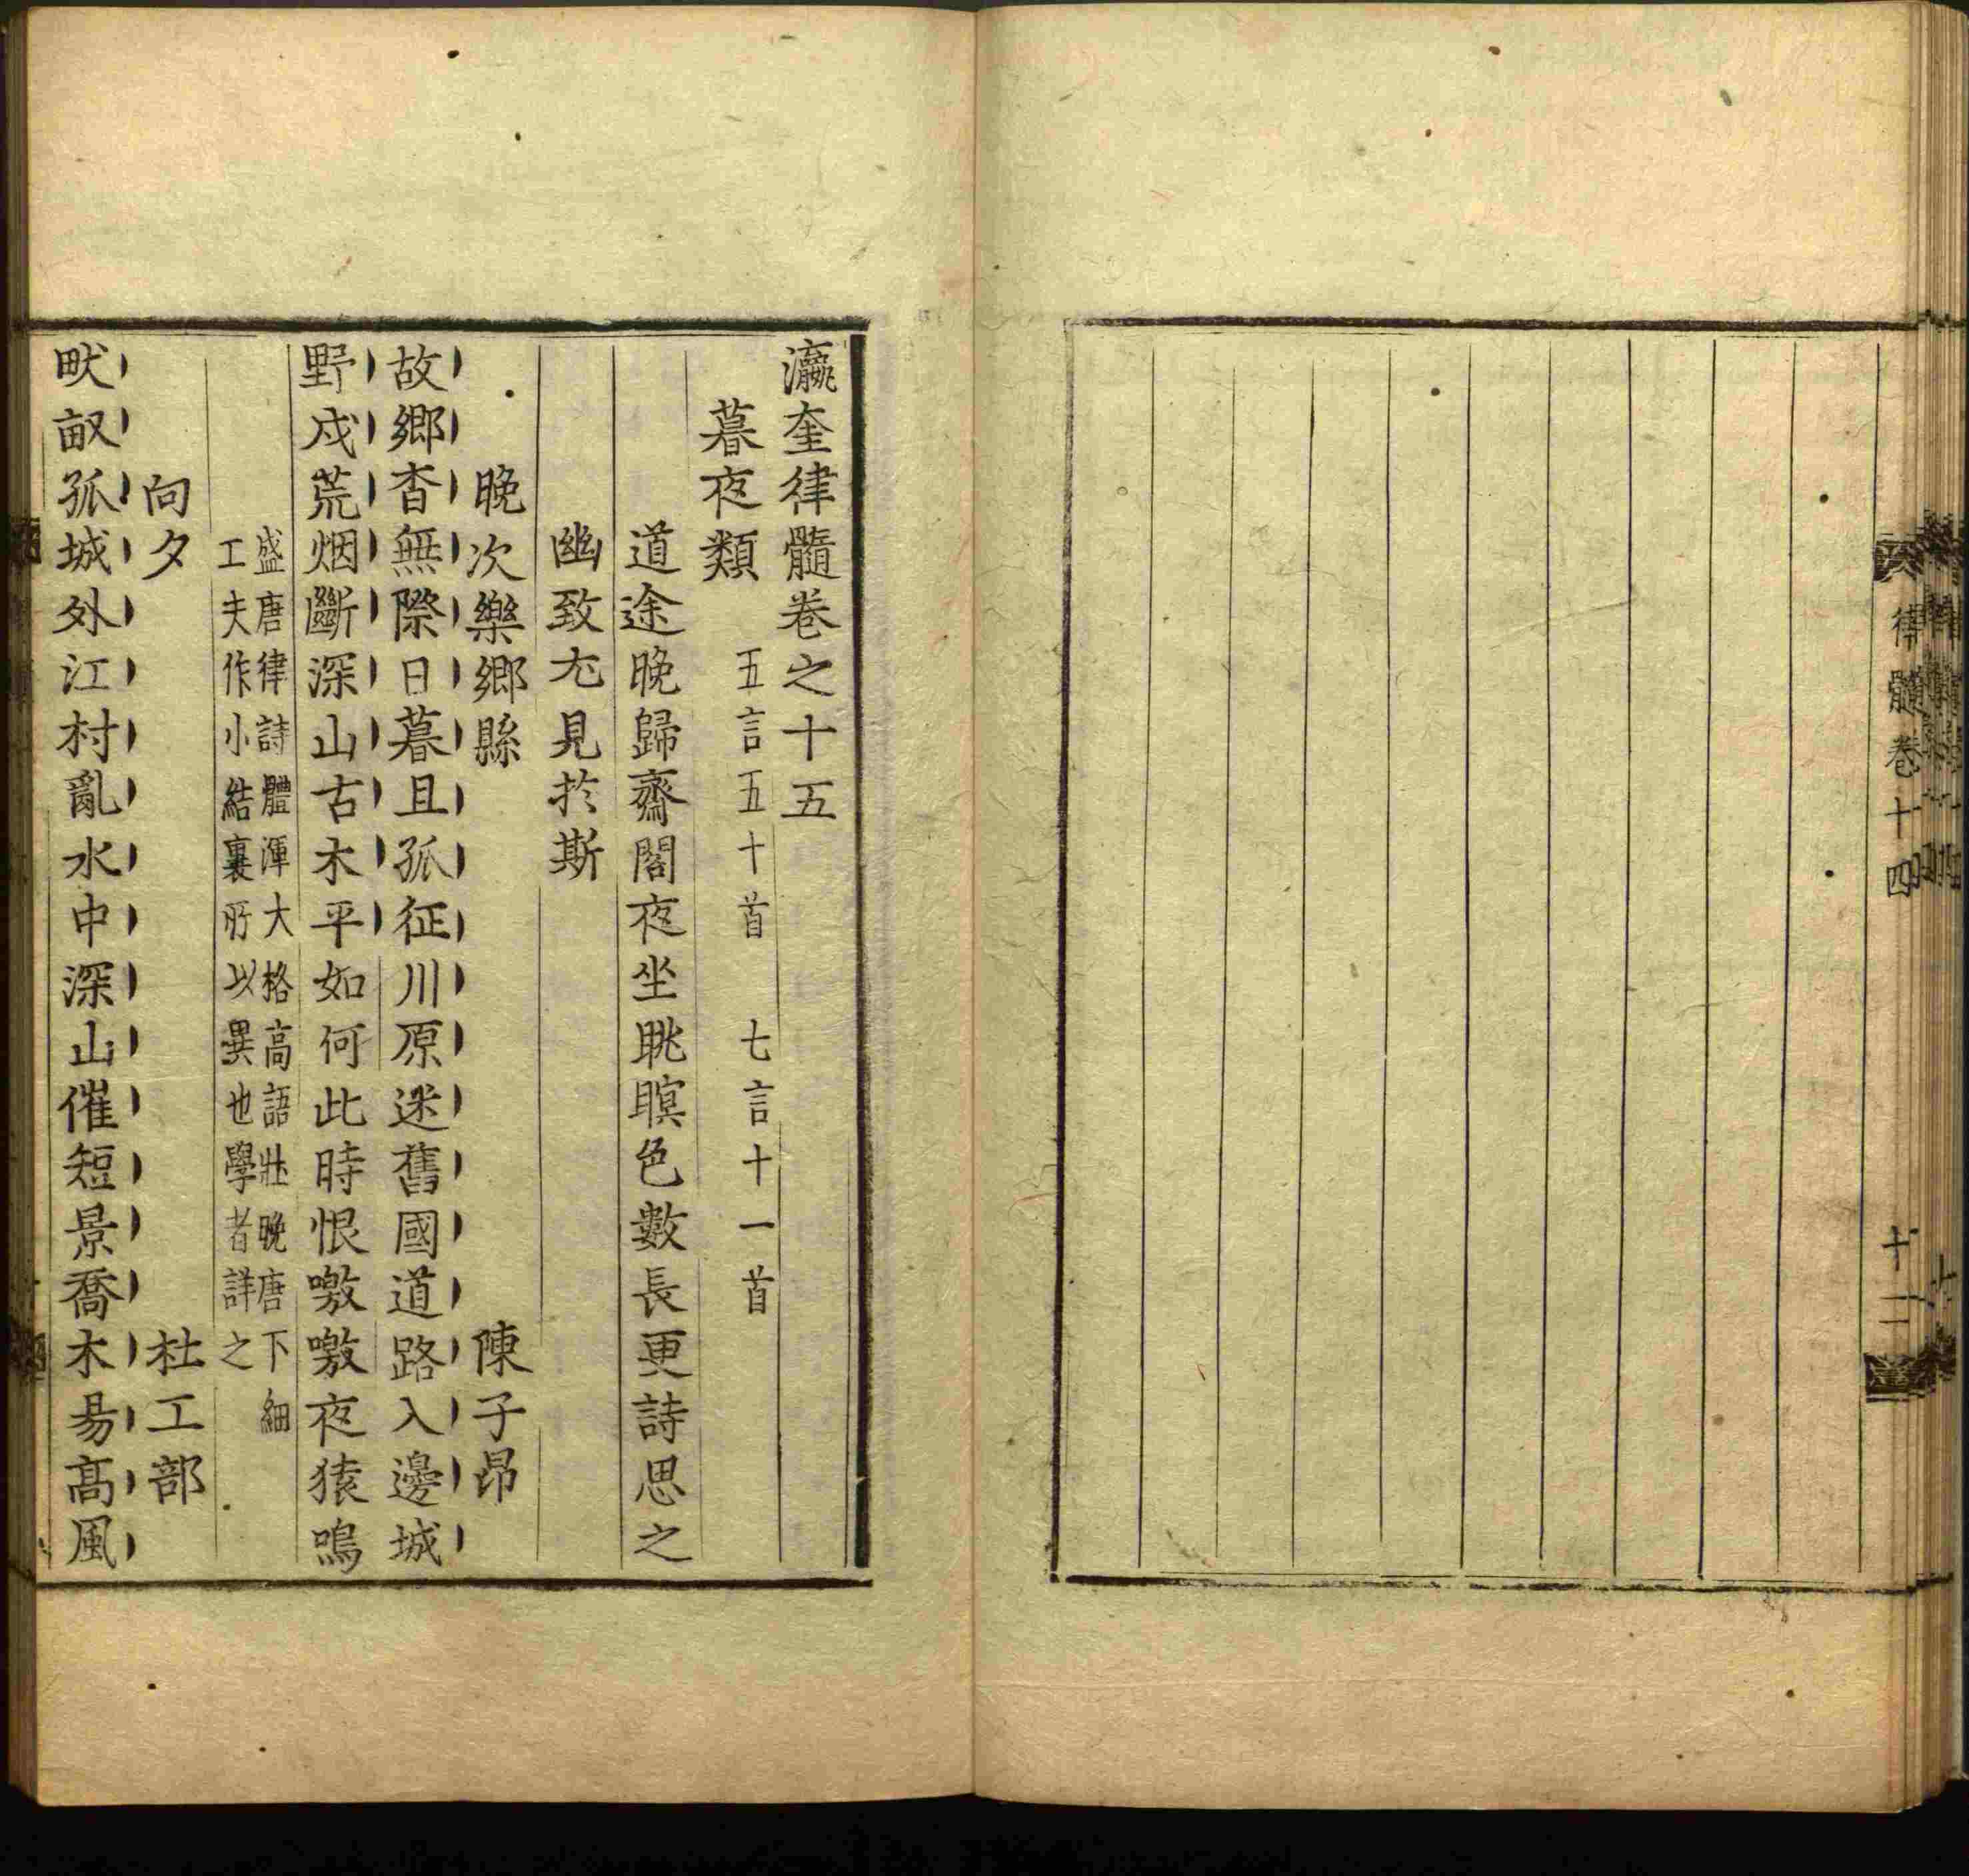 律髓卷十四
十二
瀛奎律髓卷之十五
暮夜類 五言五十首 七言十一首
道途晚歸齋閣夜坐眺暝色數長更詩思之
幽致尤見於斯
晚次樂鄉縣 陳子昂
故鄉杳無際日暮且孤征川原迷舊國道路入邊城
野戍荒烟斷深山古木平如何此時恨噭噭夜猿鳴
盛唐律詩體渾大格高語壯晚唐下細
工夫作小結裹所以異也學者詳之
向夕 杜工部
畎畝孤城外江村亂水中深山催短景喬木易高風